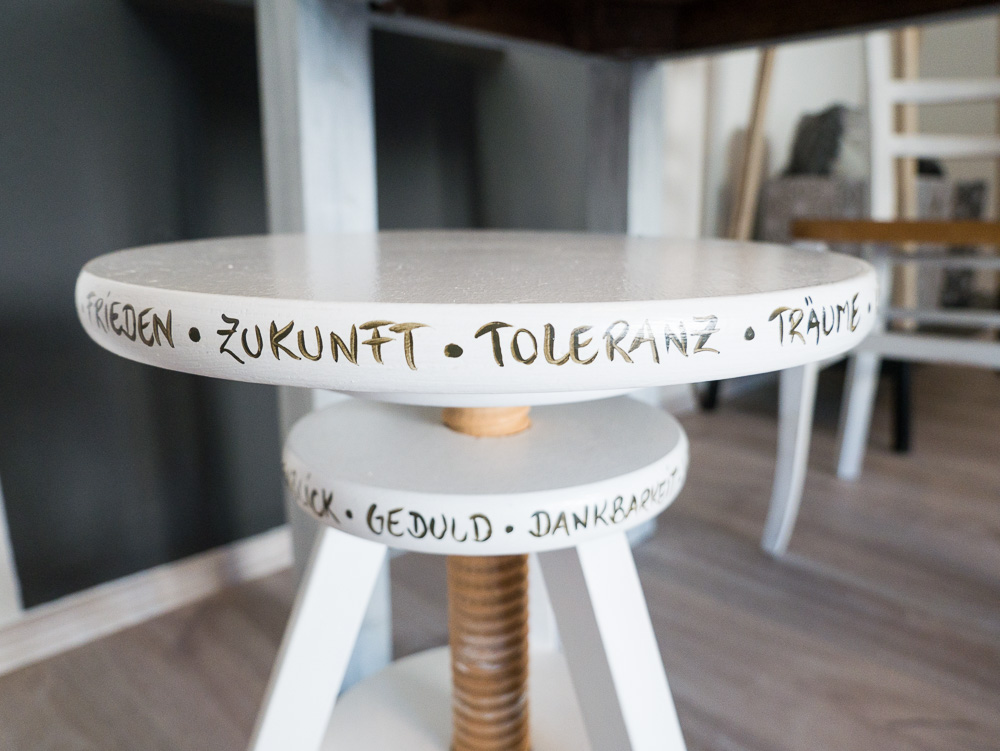 FRIEDEN • ZUKUNFT • TOLERANZ • TRÄUME •
• GEDULD • DANKBARKEIT